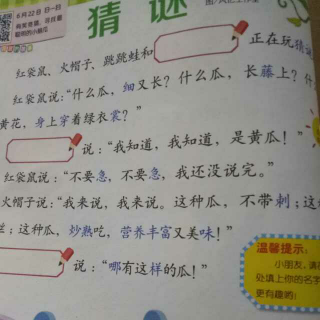 6月22日 日一日
猜谜
聪明的小脑瓜
红袋鼠、火帽子、跳跳蛙和 正在玩猜
红袋鼠说:“什么瓜,细又长?什么瓜,长藤上?什
黄花,身上穿着绿衣裳?”
说:“我知道,我知道,是黄瓜!”
红袋鼠说:“不要急,不要急,我还没说完。”
火帽子说:“我来说,我来说。这种瓜,不带刺;这
生;这种瓜,炒熟吃,营养丰富又美味!”
说:“哪有这样的瓜!”
温馨提示:
小朋友,请
处填上你的名字
更有趣哟!